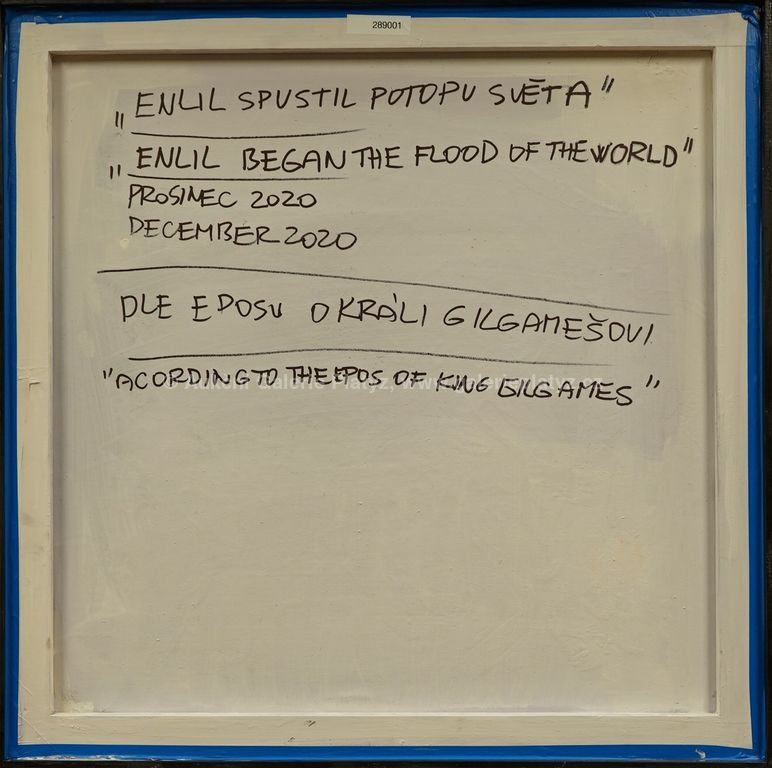 289001
„ENLIL SPUSTIL POTOPU SVĚTA"
„ENLIL BEGAN THE FLOOD OF THE WORLD"
PROSINEC 2020
DECEMBER 2020
DLE EPOSU O KRÁLI GILGAMEŠOVI
"ACORDING TO THE EPOS OF KING GILGAMES"